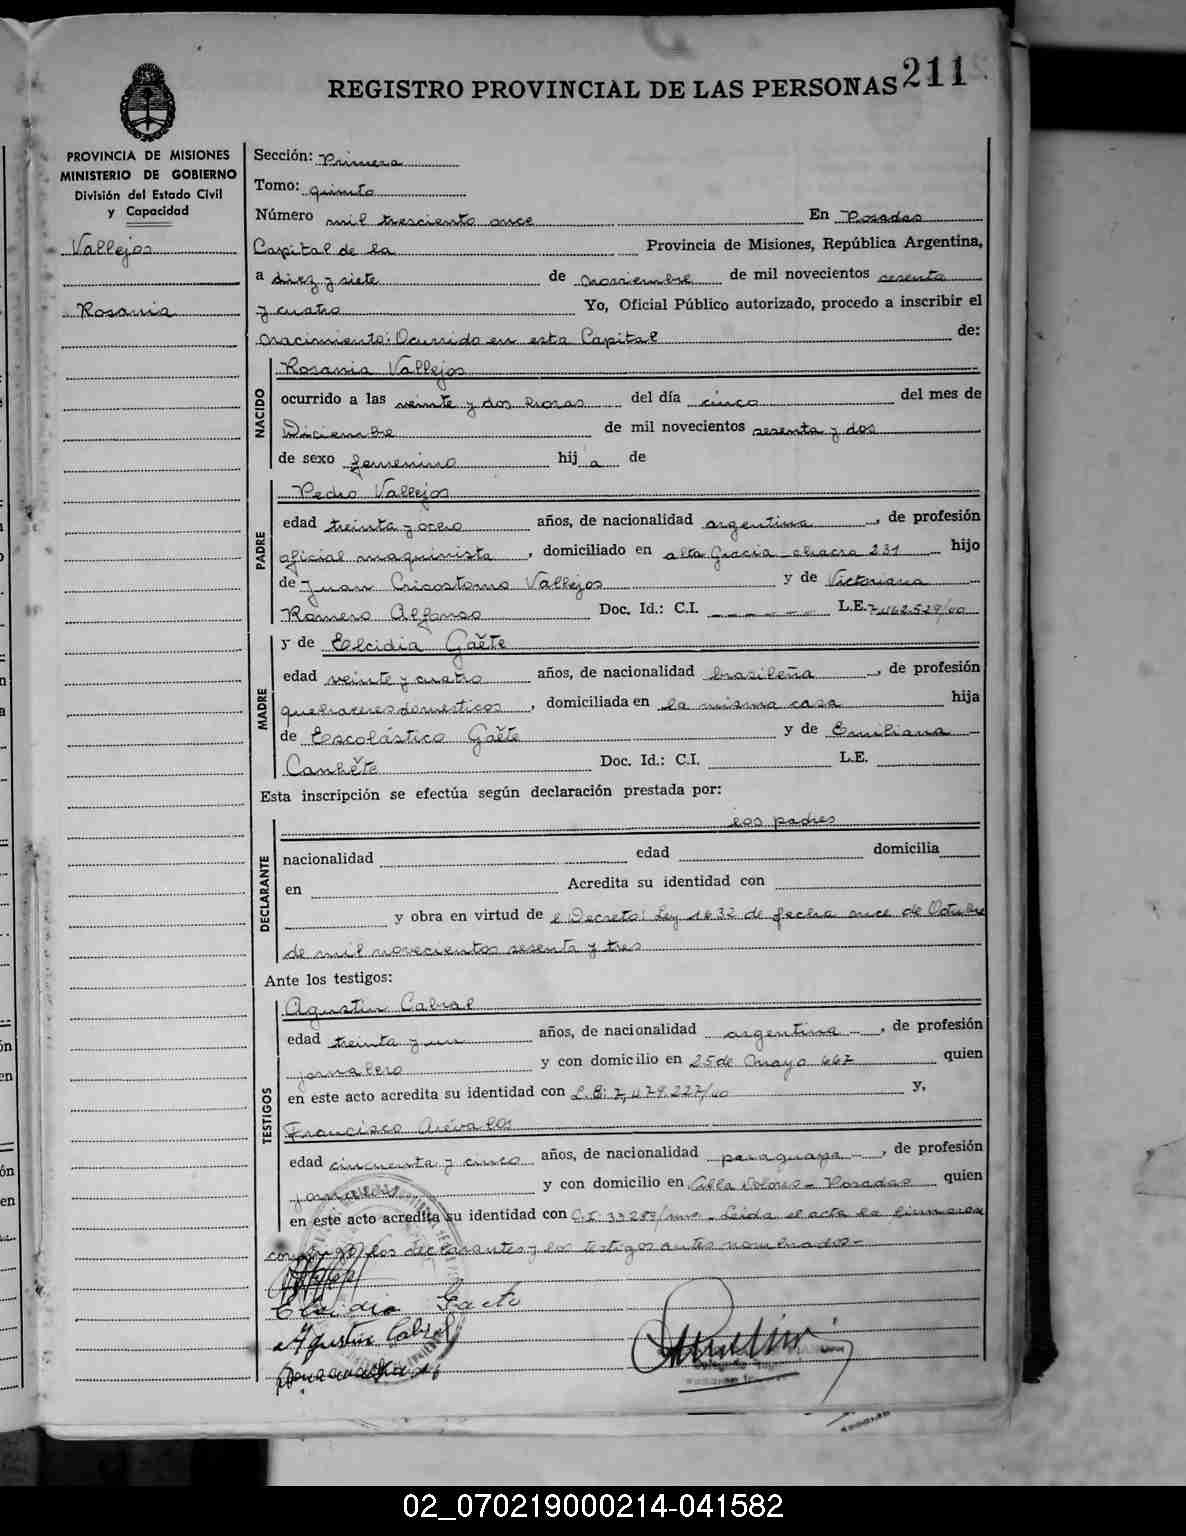 REGISTRO PROVINCIAL DE LAS PERSONAS 211
PROVINCIA DE MISIONES
MINISTERIO DE GOBIERNO
División del Estado Civil
y Capacidad
Vallejos
Rosania
Sección: Primera
Tomo: quinto
Número mil tresciento once En Posadas
Capital de la Provincia de Misiones, República Argentina,
a diez y siete de noviembre de mil novecientos sesenta
y cuatro Yo, Oficial Público autorizado, procedo a inscribir el
nacimiento: Ocurrido en esta Capital de:
NACIDO
Rosania Vallejos
ocurrido a las veinte y dos horas del día cinco del mes de
Diciembre de mil novecientos sesenta y dos
de sexo femenino hij a de
PADRE
Pedro Vallejos
edad treinta y ocho años, de nacionalidad argentina, de profesión
oficial maquinista, domiciliado en alta Gracia chacra 231 hijo
de Juan Cricostomo Vallejos y de Victoriana
Romero Alfonso Doc. Id.: C.I. L.E. 7.462.529/00
MADRE
y de Elcidia Gaĕte
edad veinte y cuatro años, de nacionalidad brasileña, de profesión
quehaceres domesticos, domiciliada en la misma casa hija
de Escolástico Gaĕte y de Emiliana
Canhĕte Doc. Id.: C.I. L.E.
Esta inscripción se efectúa según declaración prestada por:
DECLARANTE
los padres
nacionalidad edad domicilia
en Acredita su identidad con
y obra en virtud de el Decreto: Ley 1632 de fecha once de Octubre
de mil novecientos sesenta y tres
Ante los testigos:
TESTIGOS
Agustin Cabral
edad treinta y un años, de nacionalidad argentina, de profesión
jornalero y con domicilio en 25 de Mayo 667 quien
en este acto acredita su identidad con L.E: 7,479.227/00 y,
Francisco Arévalos
edad cincuenta y cinco años, de nacionalidad paraguaya, de profesión
jornalero y con domicilio en Villa Dolores - Posadas quien
en este acto acredita su identidad con C.I. 33289/mns. Leida el acta la firmaron
los declarantes y los testigos antes nombrados-
Elcidia Gaete
Agustin Cabral
02_070219000214-041582